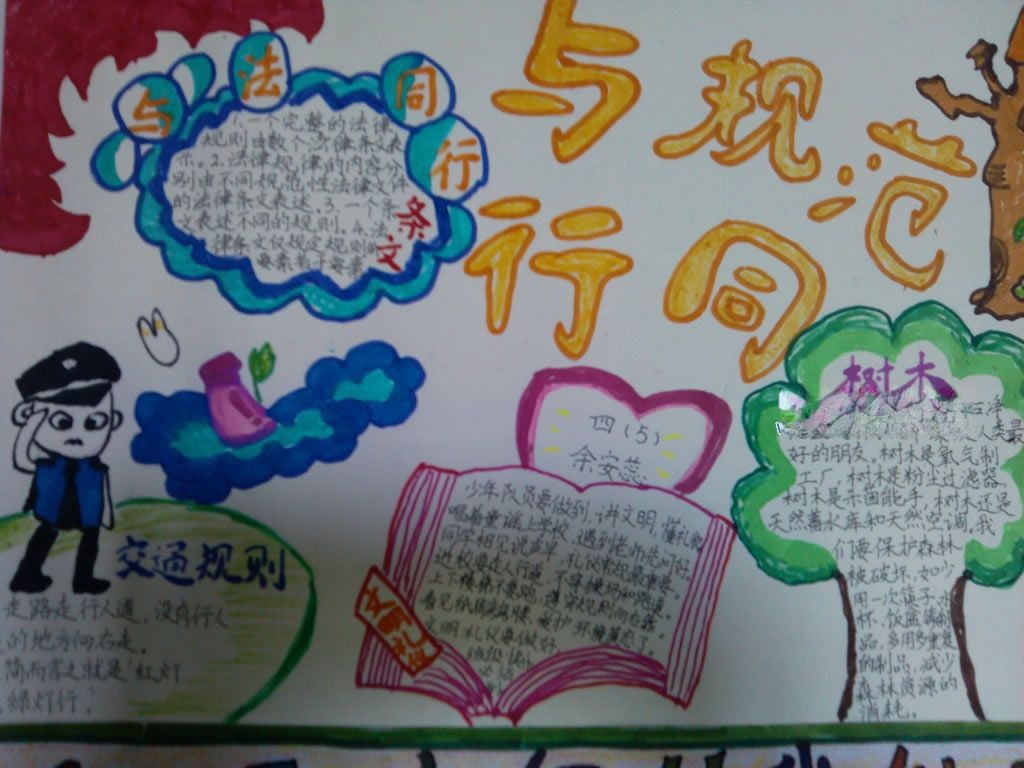 与规范
同行
与法同行
1.一个完整的法律
规则由数个法律条文表
示。2.法律规律的内容分
别由不同规范性法律文件
的法律条文表述。3.一个条
文表述不同的规则。4.法
律条文仅规定规则的
要素若干要素
条文
四（5）
余安蕊
少年队员要做到，讲文明，懂礼貌
唱着童谣上学校，遇到老师先问好。
同学相见说声早，礼仪常规最重要。
进校要走人行道，不穿操场和跑道。
上下楼梯不要跑，遵守规则向右靠。
看见纸屑
文明礼仪要做好
文明礼仪
交通规则
走路走行人道，没有行人
的地方向右走。
简而言之就是“红灯
绿灯行”
树木
人类最
好的朋友，树木是氧气制
工厂，树木是粉尘过滤器，
树木是杀菌能手，树木还是
天然蓄水库和天然空调，我
们要保护森林
被破坏，如少
用一次筷子，水
杯、饭盒等制
品，多用多重复
的制品，减少
森林资源的
消耗。